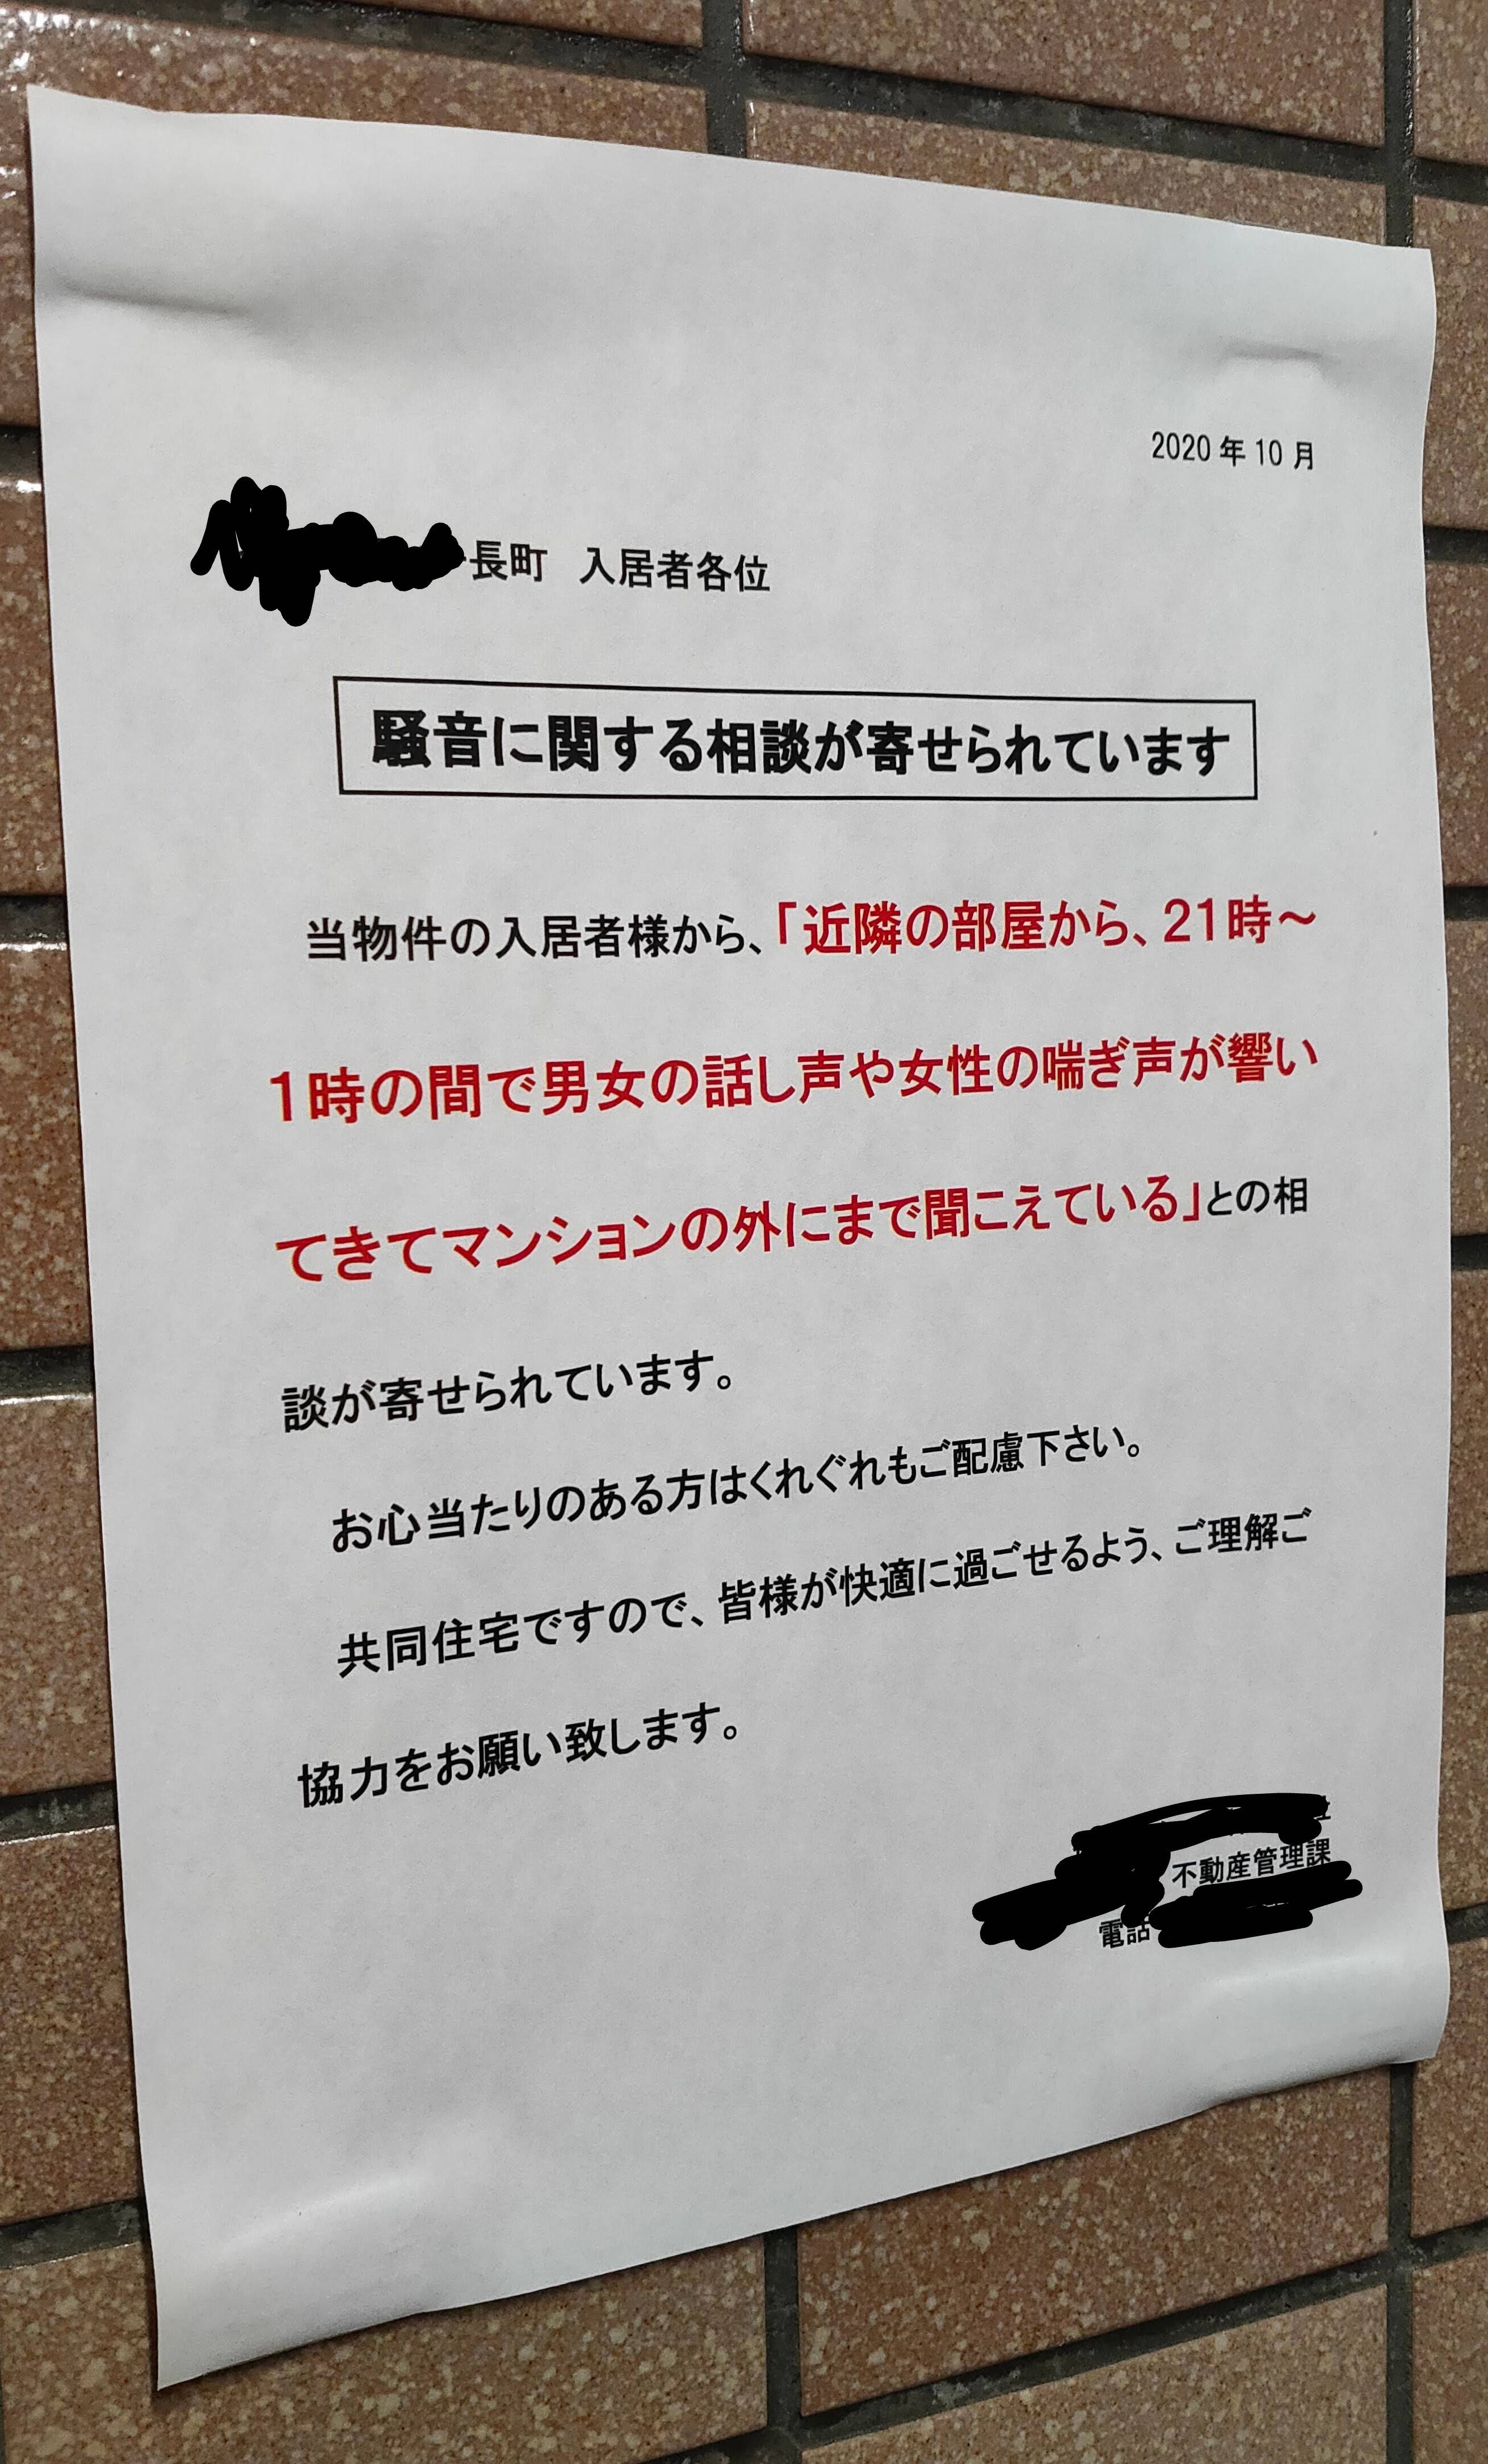 2020年10月
長町　入居者各位
騒音に関する相談が寄せられています
当物件の入居者様から、「近隣の部屋から、21時～
1時の間で男女の話し声や女性の喘ぎ声が響い
てきてマンションの外にまで聞こえている」との相
談が寄せられています。
お心当たりのある方はくれぐれもご配慮下さい。
共同住宅ですので、皆様が快適に過ごせるよう、ご理解ご
協力をお願い致します。
不動産管理課
電話